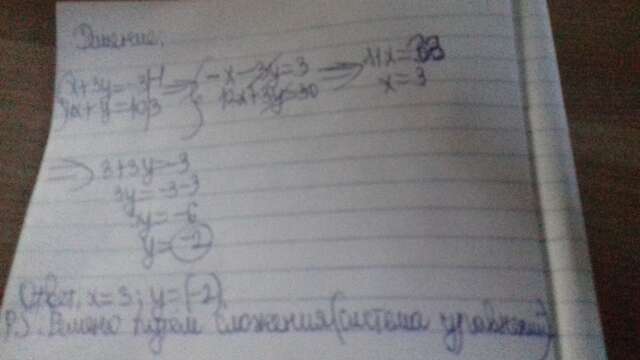 Решение:
x+3y=-3|-1 => { -x-3y=3 => 11x=33
4x+y=10|3 12x+3y=30 x=3
=> 3+3y=-3
3y=-3-3
3y=-6
y=-2
Ответ. x=3; y=(-2).
P.S. Решено путем сложения(система уравнений)